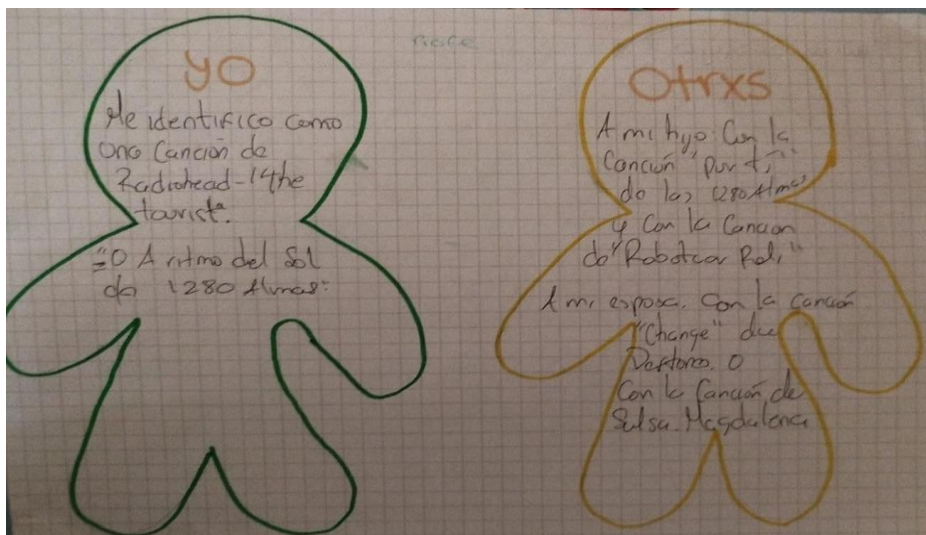 yo
Me identifico como
una Canción de
Radiohead - "the
tourist".
"O A ritmo del Sol
de 1280 Almas"
Otrxs
A mi hijo: Con la
Canción "por ti"
de las 1280 Almas
y Con la Canción
de "Robotcar Poli"
A mi esposa. Con la canción
"Change" de
Deftones. O
Con la Canción de
Salsa. Magdalena